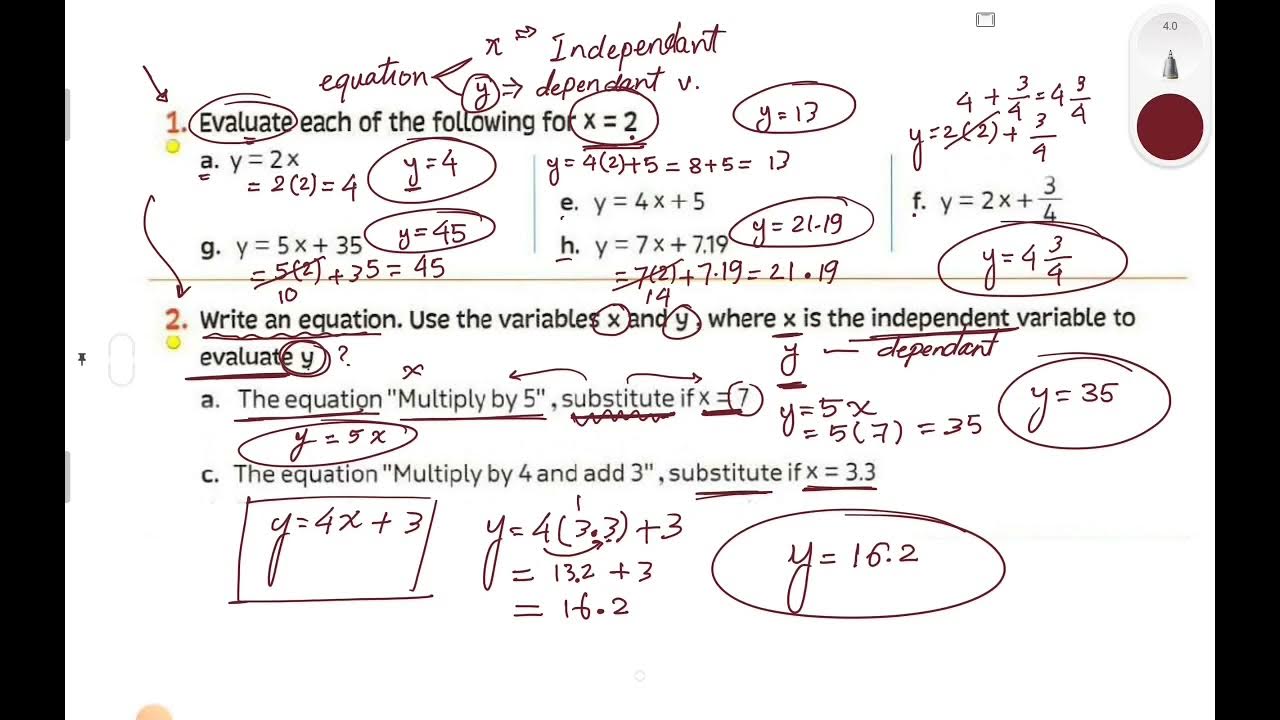 4.0
x ⇒ Independant
equation
y ⇒ dependant v.
1. Evaluate each of the following for x = 2
y = 13
4 + 3/4 = 4 3/4
y = 2(2) + 3/4
a. y = 2x
= 2(2) = 4
y = 4
y = 4(2)+5 = 8+5 = 13
e. y = 4x + 5
f. y = 2x + 3/4
g. y = 5x + 35
y = 45
= 5(2) + 35 = 45
10
h. y = 7x + 7.19
y = 21.19
= 7(2) + 7.19 = 21.19
14
y = 4 3/4
2. Write an equation. Use the variables x and y, where x is the independent variable to
evaluate y ?
y — dependant
x
a. The equation "Multiply by 5", substitute if x = 7
y = 5x
y = 5x
= 5(7) = 35
y = 35
c. The equation "Multiply by 4 and add 3", substitute if x = 3.3
y = 4x + 3
1
y = 4(3.3) + 3
= 13.2 + 3
= 16.2
y = 16.2